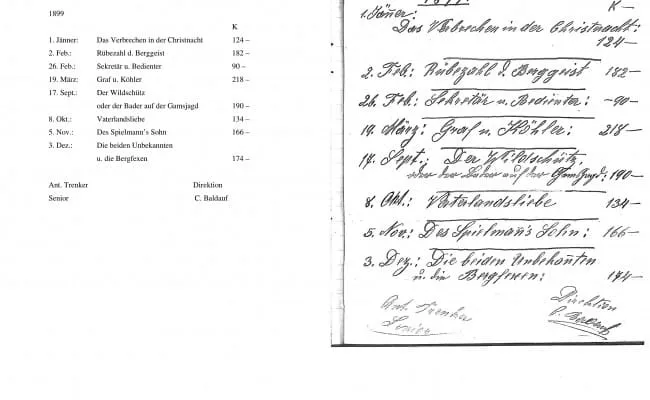 1899
K
1. Jänner: Das Verbrechen in der Christnacht 124 –
2. Feb.: Rübezahl d. Berggeist 182 –
26. Feb.: Sekretär u. Bedienter 90 –
19. März: Graf u. Köhler 218 –
17. Sept.: Der Wildschütz
oder der Bader auf der Gamsjagd 190 –
8. Okt.: Vaterlandsliebe 134 –
5. Nov.: Des Spielmann's Sohn 166 –
3. Dez.: Die beiden Unbekannten
u. die Bergfexen 174 –
Ant. Trenker Direktion
Senior C. Baldauf
1899.
1. Jäner: K –
Das Verbrechen in der Christnacht:
124 –
2. Feb: Rübezahl d. Berggeist 182 –
26. Feb: Sekretär u. Bedienter: – 90 –
19. März: Graf u. Köhler: 218 –
17. Sept.: Der Wildschütz,
oder der Bader auf der Gamsjagd: 190 –
8. Okt.: Vaterlandsliebe 134 –
5. Nov.: Des Spielman's Sohn: 166 –
3. Dez.: Die beiden Unbekannten
u. die Bergfexen: 174 –
Ant. Trenker
Senior
Direktion
C. Baldauf